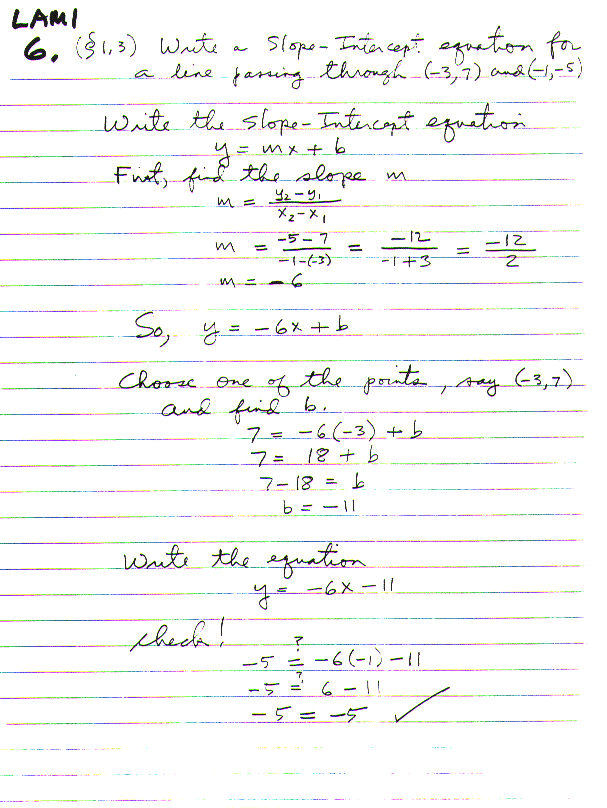 LAM1
6. (§1,3) Write a Slope-Intercept equation for
a line passing through (-3,7) and (-1,-5)
Write the Slope-Intercept equation
y = mx + b
First, find the slope m
m = (y₂ - y₁)/(x₂ - x₁)
m = (-5 - 7)/(-1-(-3)) = -12/(-1+3) = -12/2
m = -6
So, y = -6x + b
Choose one of the points, say (-3,7)
and find b.
7 = -6(-3) + b
7 = 18 + b
7 - 18 = b
b = -11
Write the equation
y = -6x - 11
check!
-5 ≟ -6(-1) - 11
-5 ≟ 6 - 11
-5 = -5 ✓